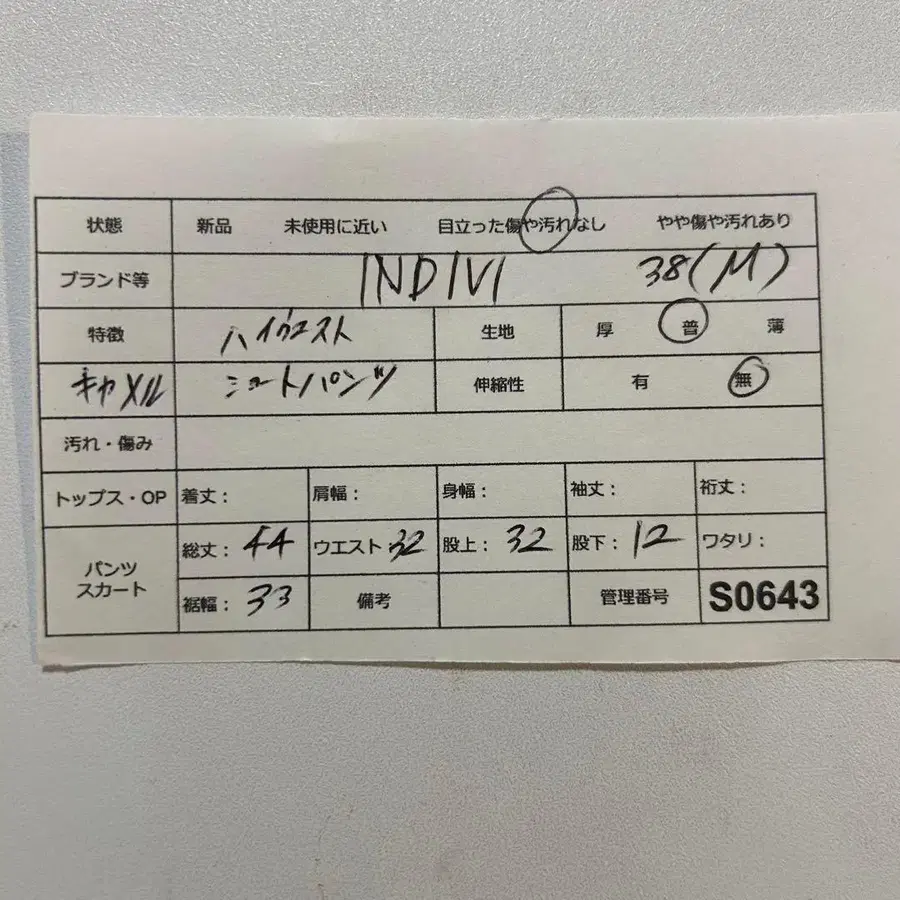 状態 新品 未使用に近い 目立った傷や汚れなし やや傷や汚れあり
ブランド等 INDIVI 38(M)
特徴 ハイウエスト 生地 厚 普 薄
キャメル ショートパンツ 伸縮性 有 無
汚れ・傷み
トップス・OP 着丈： 肩幅： 身幅： 袖丈： 裄丈：
パンツ スカート 総丈：44 ウエスト：32 股上：32 股下：12 ワタリ：
裾幅：33 備考 管理番号 S0643